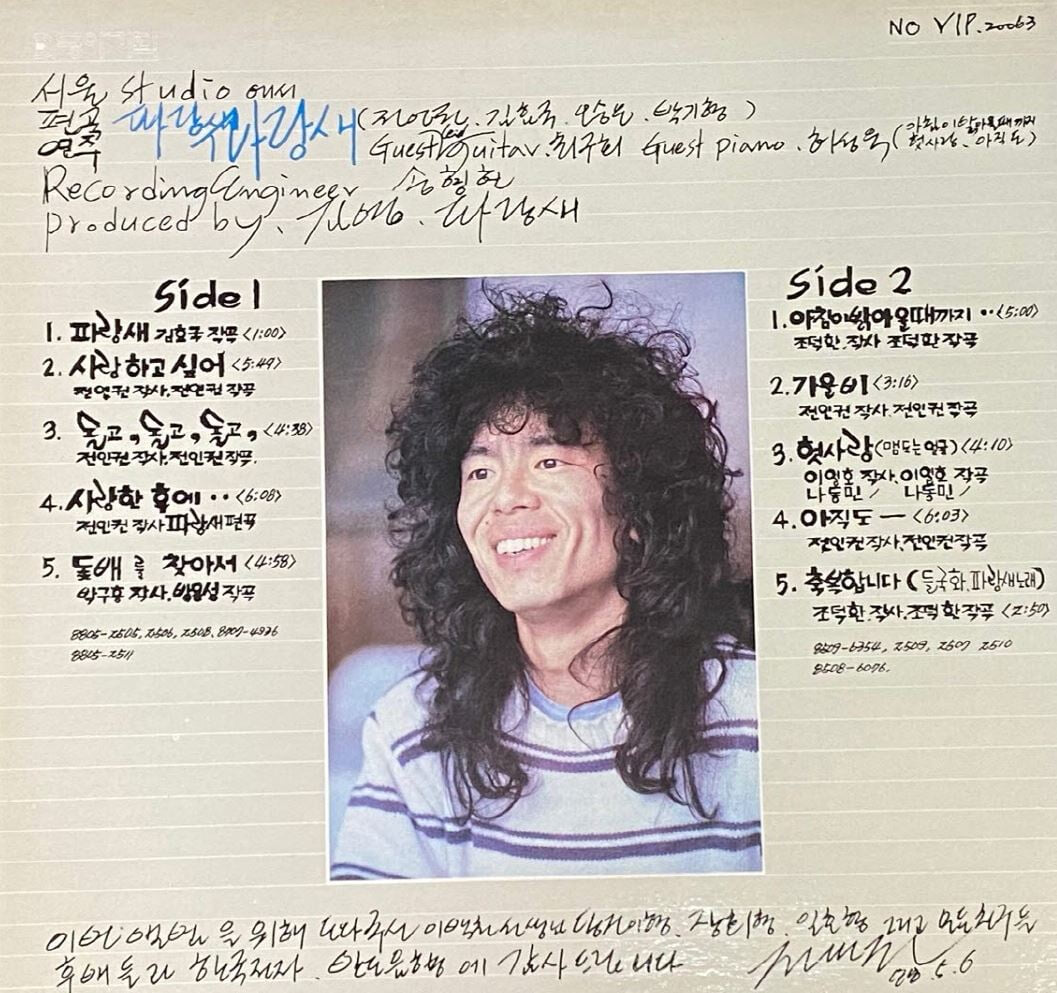 NO VIP.20063
서울 studio 에서
편곡 파랑새 파랑새 (전인권. 김효국. 오승은. 박기형)
연주 Guest Guitar. 최구희 Guest piano. 하성욱 (아침이 밝아올때까지
헛사랑. 아직도)
Recording Engineer 송형헌
produced by. 파랑새
Side 1
1. 파랑새 김효국 작곡 <1:00>
2. 사랑하고 싶어 <5:49>
전인권 작사. 전인권 작곡
3. 돌고, 돌고, 돌고, <4:38>
전인권 작사. 전인권 작곡.
4. 사랑한 후에 ·· <6:08>
전인권 작사 파랑새 편곡
5. 돛배를 찾아서 <4:58>
박구홍 작사. 방용성 작곡
8805-2505, 2506, 2508, 8707-4926
8805-2511
Side 2
1. 아침이 밝아올때까지 ·· <5:00>
조덕환. 작사 조덕환 작곡
2. 가을비 <3:16>
전인권 작사. 전인권 작곡
3. 헛사랑 (맴도는 얼굴) <4:10>
이영호 작사. 이영호 작곡
나동민 나동민
4. 아직도 — <6:03>
전인권 작사. 전인권 작곡
5. 축복합니다 (들국화. 파랑새 노래)
조덕환. 작사. 조덕환 작곡 <2:50>
8509-6354, 2509, 2507 2510
8508-6076.
이번 앨범을 위해 도와주신 선생님 그리고 모든 친구들
후배들과 한국전자. 에 감사드립니다
88.5.6